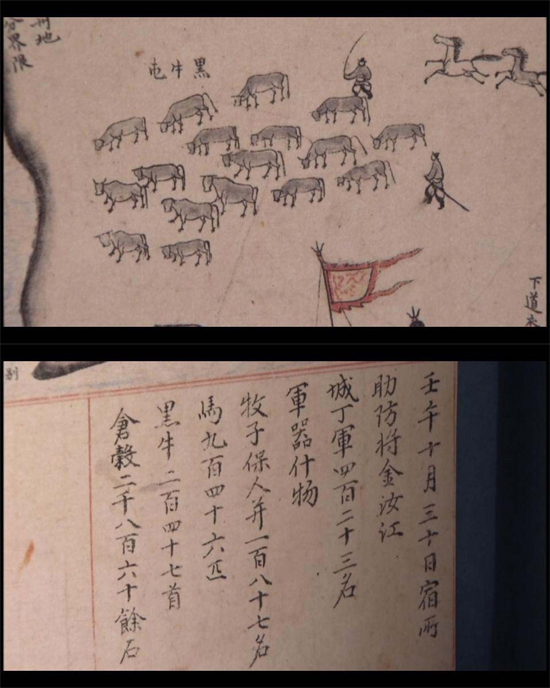 下道
黑牛屯
地
界限
壬午十月三十日宿所
助防將金汝江
城丁軍四百二十三名
軍器什物
牧子保人并一百八十七名
馬九百四十六匹
黑牛二百四十七首
倉穀二千八百六十餘石